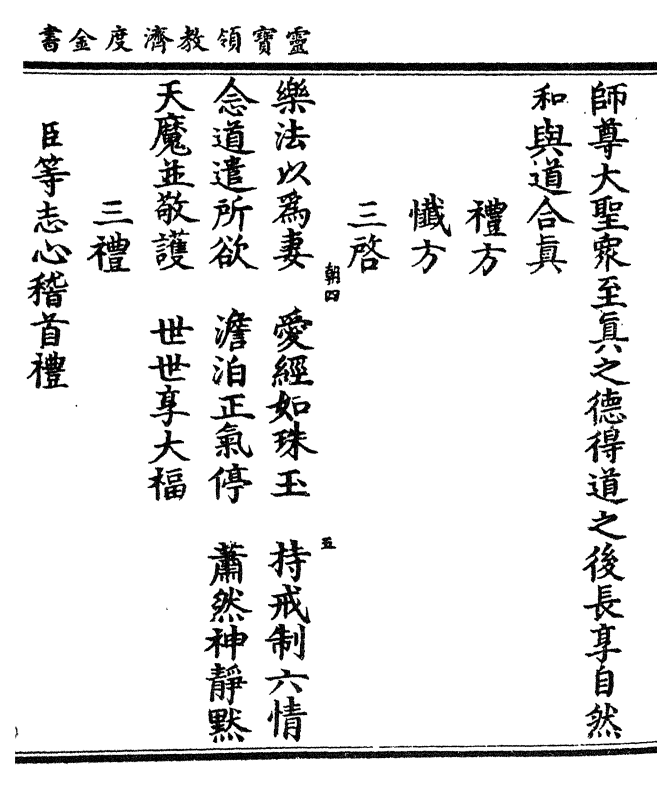 靈寶領教濟度金書
師尊大聖眾至真之德得道之後長享自然
和與道合真
禮方
懺方
三啓
朝四
五
樂法以爲妻 愛經如珠玉 持戒制六情
念道遣所欲 澹泊正氣停 蕭然神靜默
天魔並敬護 世世享大福
三禮
臣等志心稽首禮